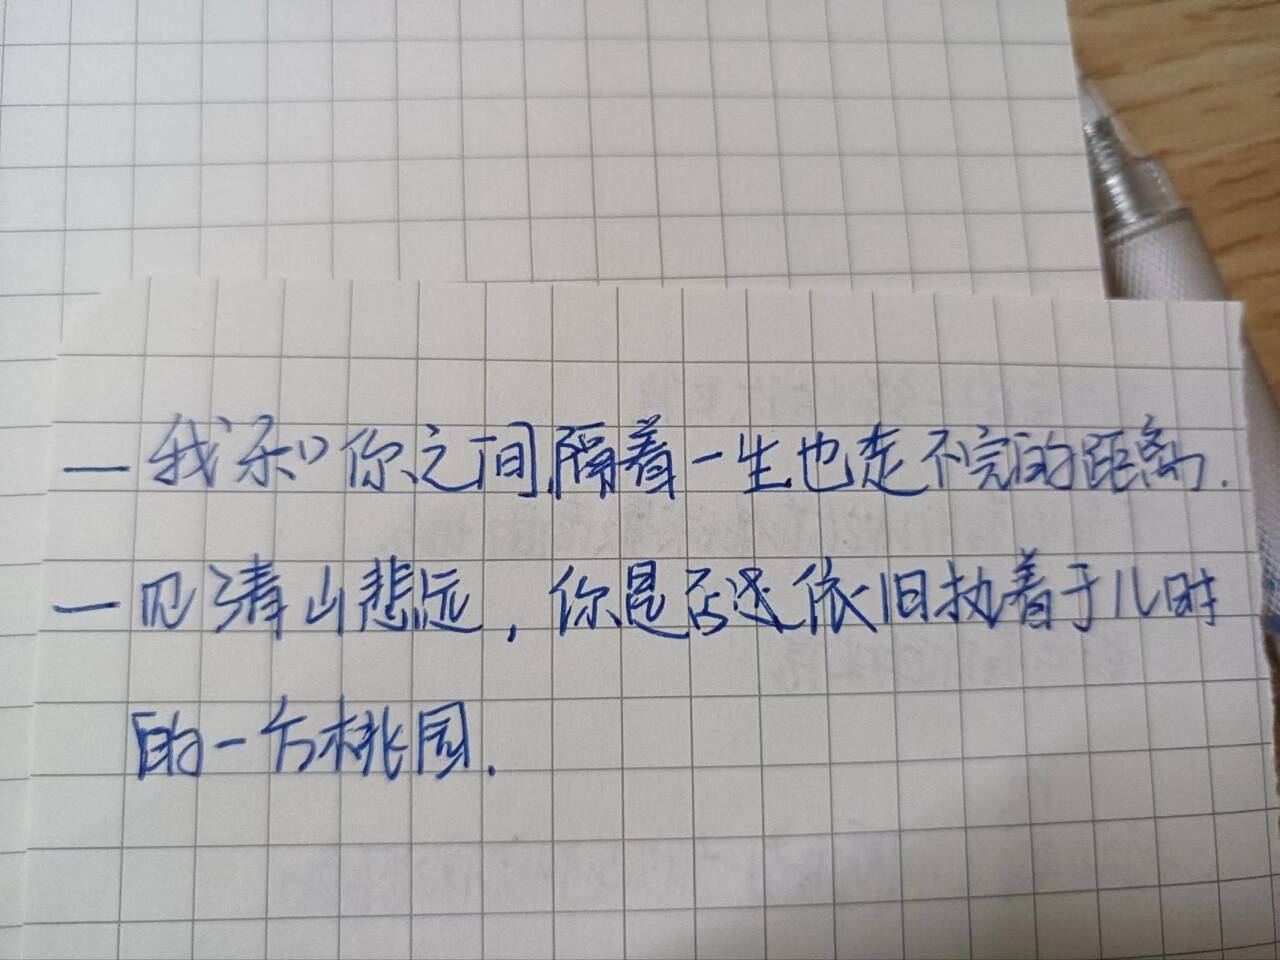 一我和你之间,隔着一生也走不完的距离.
一见清山悲远,你是否还依旧执着于儿时
的一方桃园.